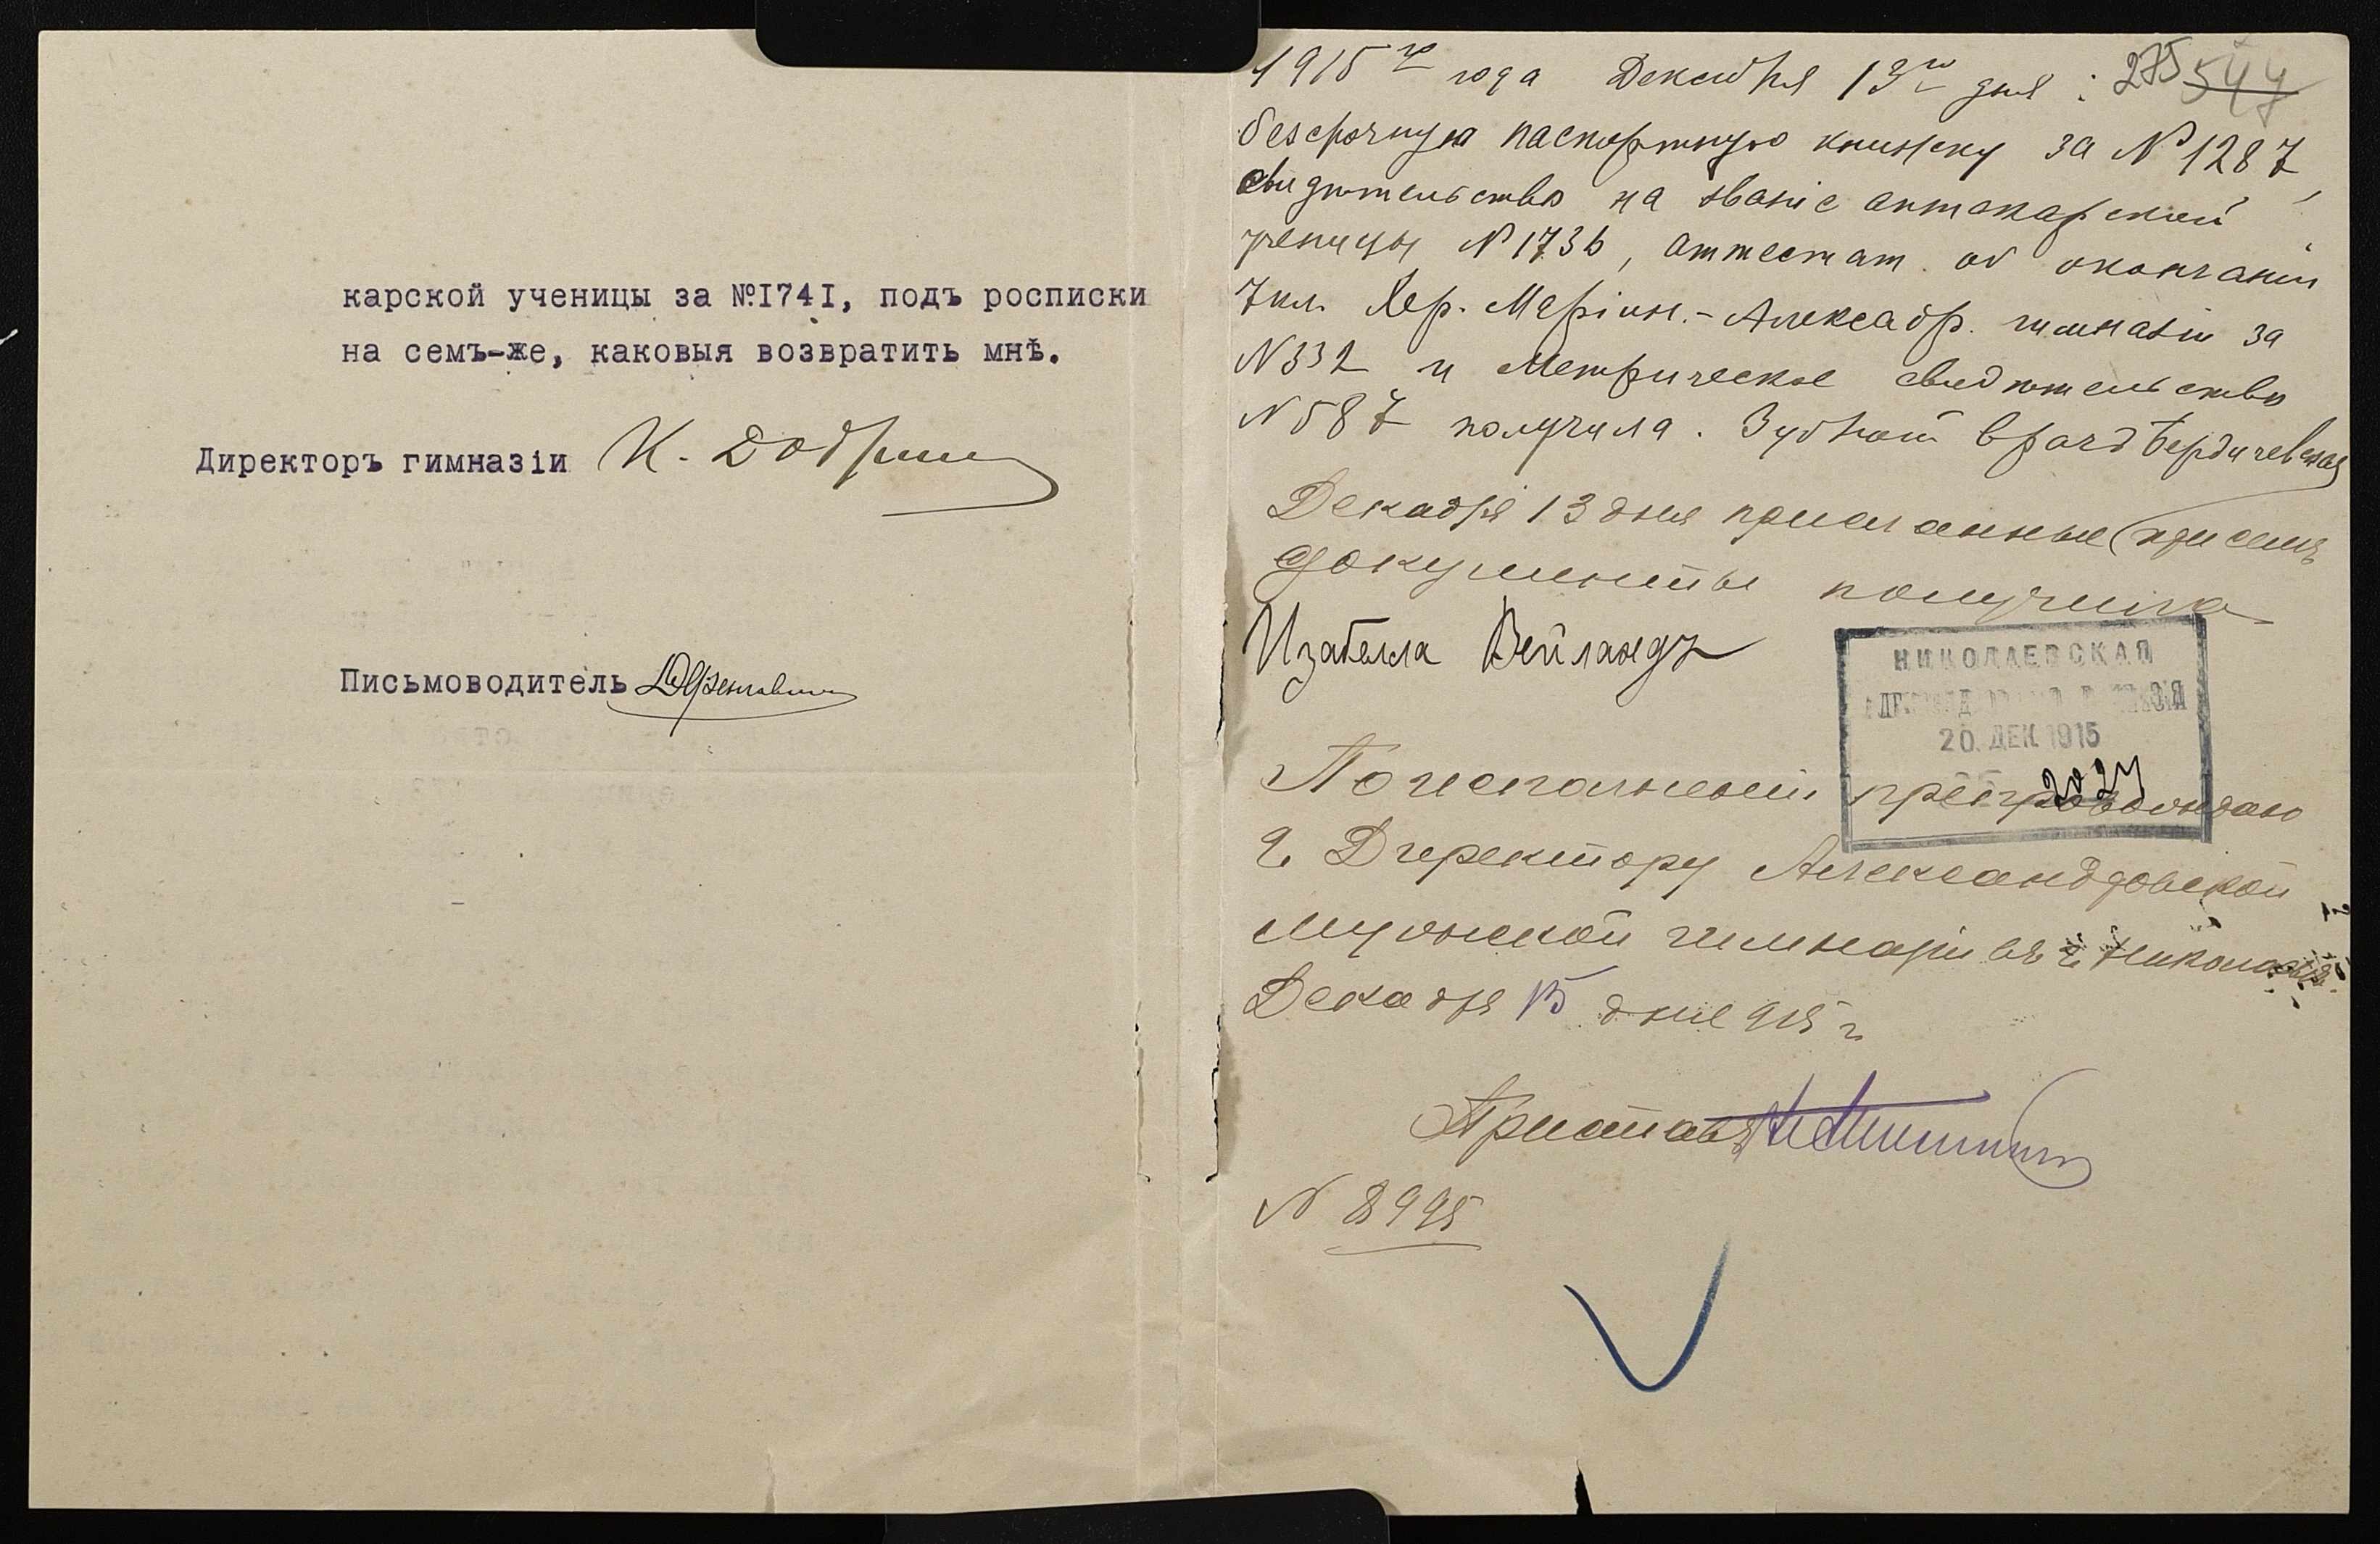 карской ученицы за №I74I, подъ росписки
на семъ-же, каковыя возвратить мнѣ.
Директоръ гимназіи К. Добр
Письмоводитель
1915 го года Декабря 13го дня : 275 547
безсрочную паспортную книжку за № 1287,
свидѣтельство на званіе аптекарской
ученицы № 1736, аттестат об окончаніи
7 кл. Хер. Маріин.-Алексадр. гимназіи за
N 332 и Метрическое свидѣтельство
N 587 получила. Зубной врачъ Бердичевская
Декабря 13 дня присланные при семъ
документы получила
Изабелла Вейландъ
НИКОЛАЕВСКАЯ
20. ДЕК. 1915
2027
По исполненіи препровождаю
Г. Директору Александровской
мужской гимназіи въ г. Николаевѣ.
Декабря 15 дня 915 г.
Приставъ
N 8995